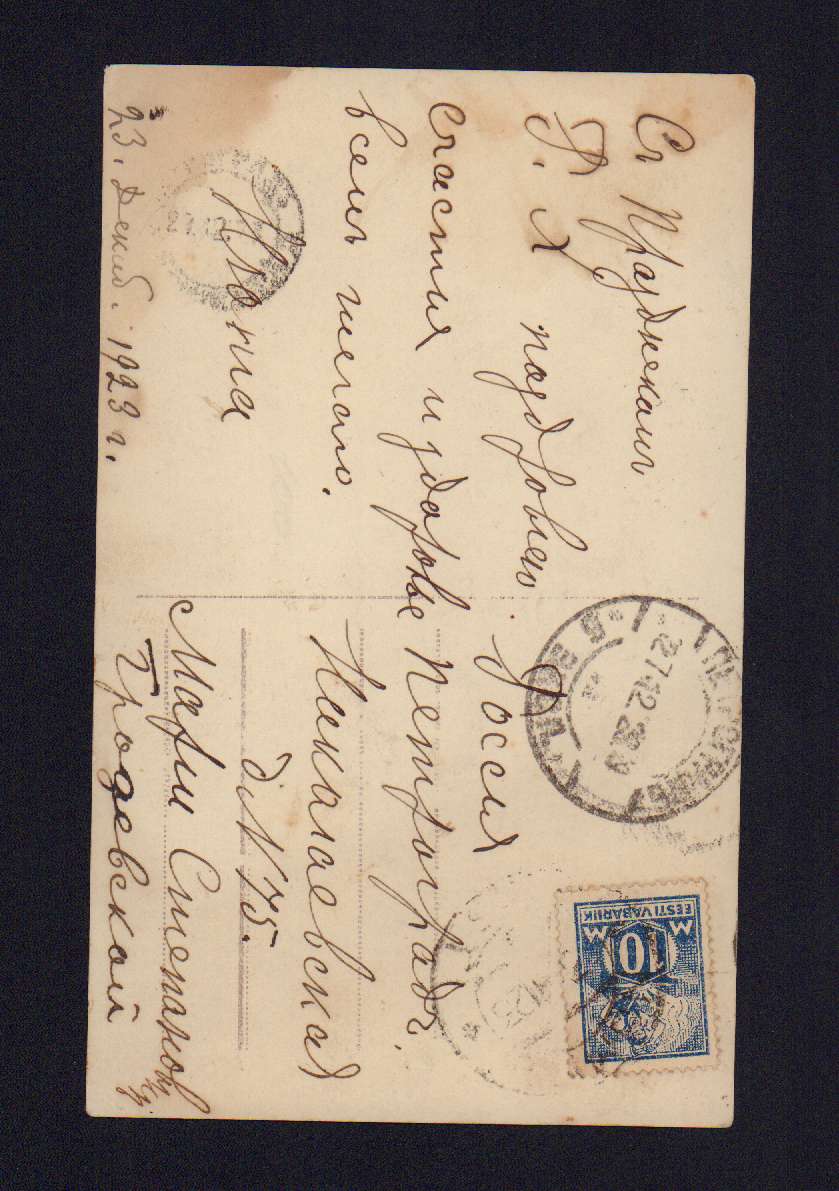 Съ Праздникамъ
Р. Х поздровлею
счастия и здаровье
всемъ желаю.
Нюна
23. Декаб. 1923 г.
Россия
Петроградъ.
Николаевская
д. N 75.
Марии Степановны
Гродевской
27.12.23
EESTI VABARIIK
M 10 M